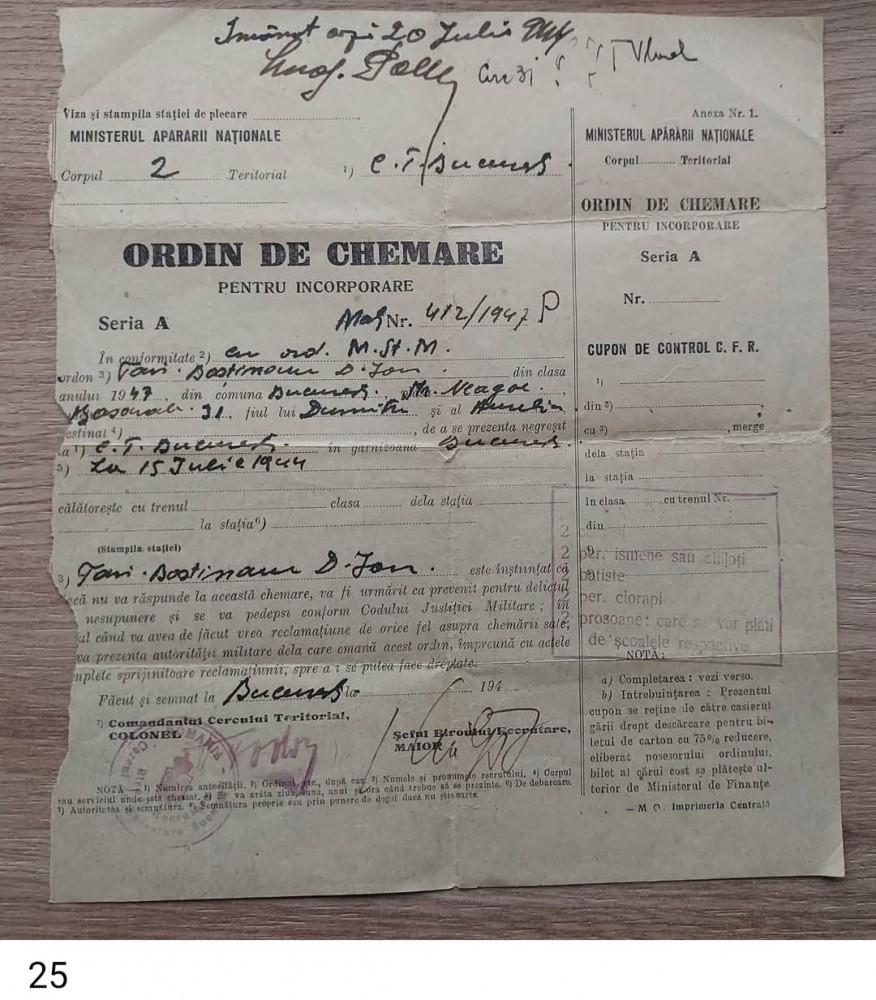 20 Iulie
Viza și stampila stației de plecare
MINISTERUL APARARII NAȚIONALE
Corpul 2 Teritorial ¹) C. T. București
ORDIN DE CHEMARE
PENTRU INCORPORARE
Seria A Nr. 412/1947 P
In conformitate ²) cu ord. M. St. M.
ordon ³) D. Ion din clasa
anului 1947, din comuna București
31, fiul lui Dumitru și al Aurelia
estinat ⁴) , de a se prezenta negreșit
la ¹) C. T. București in garnizoana București
⁵) La 15 Iulie 1944
călătorește cu trenul clasa dela stația
la stația⁶)
(Stampila stației)
³) D. Ion. este înștiințat că
acă nu va răspunde la această chemare, va fi urmărit ca prevenit pentru delictul
nesupunere și se va pedepsi conform Codului Justiției Militare; in
ul când va avea de făcut vreo reclamațiune de orice fel asupra chemării sale,
va prezenta autorității militare dela care emană acest ordin, împreună cu actele
mplete sprijinitoare reclamațiunii, spre a i se putea face dreptate.
Făcut și semnat la București la 194
⁷) Comandantul Cercului Teritorial,
COLONEL
Șeful Biroului Recrutare,
MAIOR
NOTĂ — ¹) Numirea autorității. ²) Ordinul etc., după caz. ³) Numele și pronumele recrutului. ⁴) Corpul
sau serviciul unde este chemat. ⁵) Se va arăta ziua, luna, anul și ora când trebue să se prezinte. ⁶) De debarcare.
⁷) Autoritatea și semnătura. ⁸) Semnătura proprie sau prin punere de deget dacă nu știe carte.
Anexa Nr. 1.
MINISTERUL APĂRĂRII NAȚIONALE
Corpul Teritorial
ORDIN DE CHEMARE
PENTRU INCORPORARE
Seria A
Nr.
CUPON DE CONTROL C. F. R.
¹)
din ²)
cu ³) , merge
dela stația
la stația
în clasa cu trenul Nr.
din
2
2 per. ismene sau chiloți
batiste
2 per. ciorapi
2 prosoape: care se vor plăti
de școalele respective
NOTĂ:
a) Completarea: vezi verso.
b) Intrebuințarea: Prezentul
cupon se reține de către casierul
gării drept descărcare pentru bi-
letul de carton cu 75% reducere,
eliberat posesorului ordinului,
bilet al cărui cost se plătește ul-
terior de Ministerul de Finanțe
— M. O. Imprimeria Centrală
25